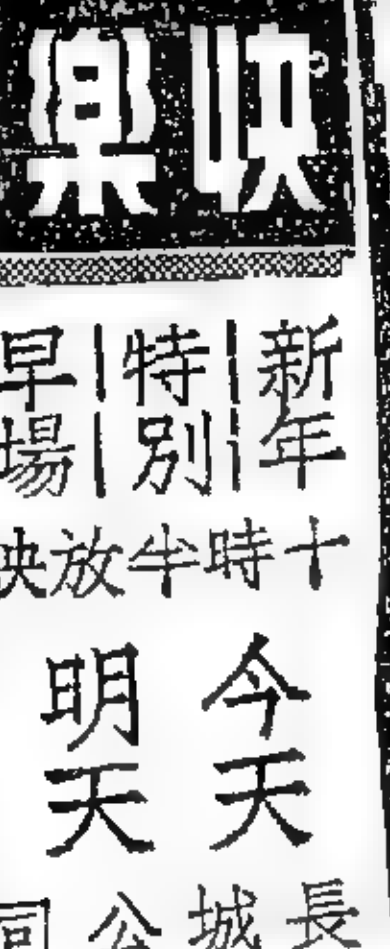 快樂
新年
特別
早場
十時半放映
今天
明天
長城公司